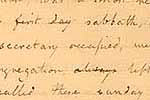 first day sabbath,
secretary occupied, we
gregation always left
called these sunday